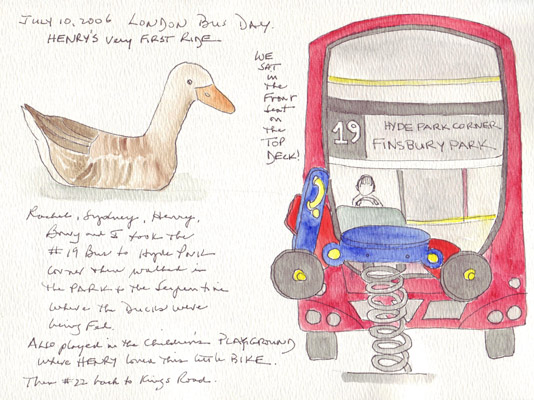 JULY 10, 2006 LONDON BUS DAY.
HENRY'S Very FIRST RIDE
WE
SAT
in
the
Front
Seat
on
the
TOP
DECK!
19
HYDE PARK CORNER
FINSBURY PARK
Rachel, Sydney, Henry,
and I took the
#19 Bus to Hyde Park
Corner then walked in
the PARK to the Serpentine
where the Ducks were
being Fed.
Also played in the Children's PLAYGROUND
where HENRY loved this little BIKE.
Then #22 back to Kings Road.